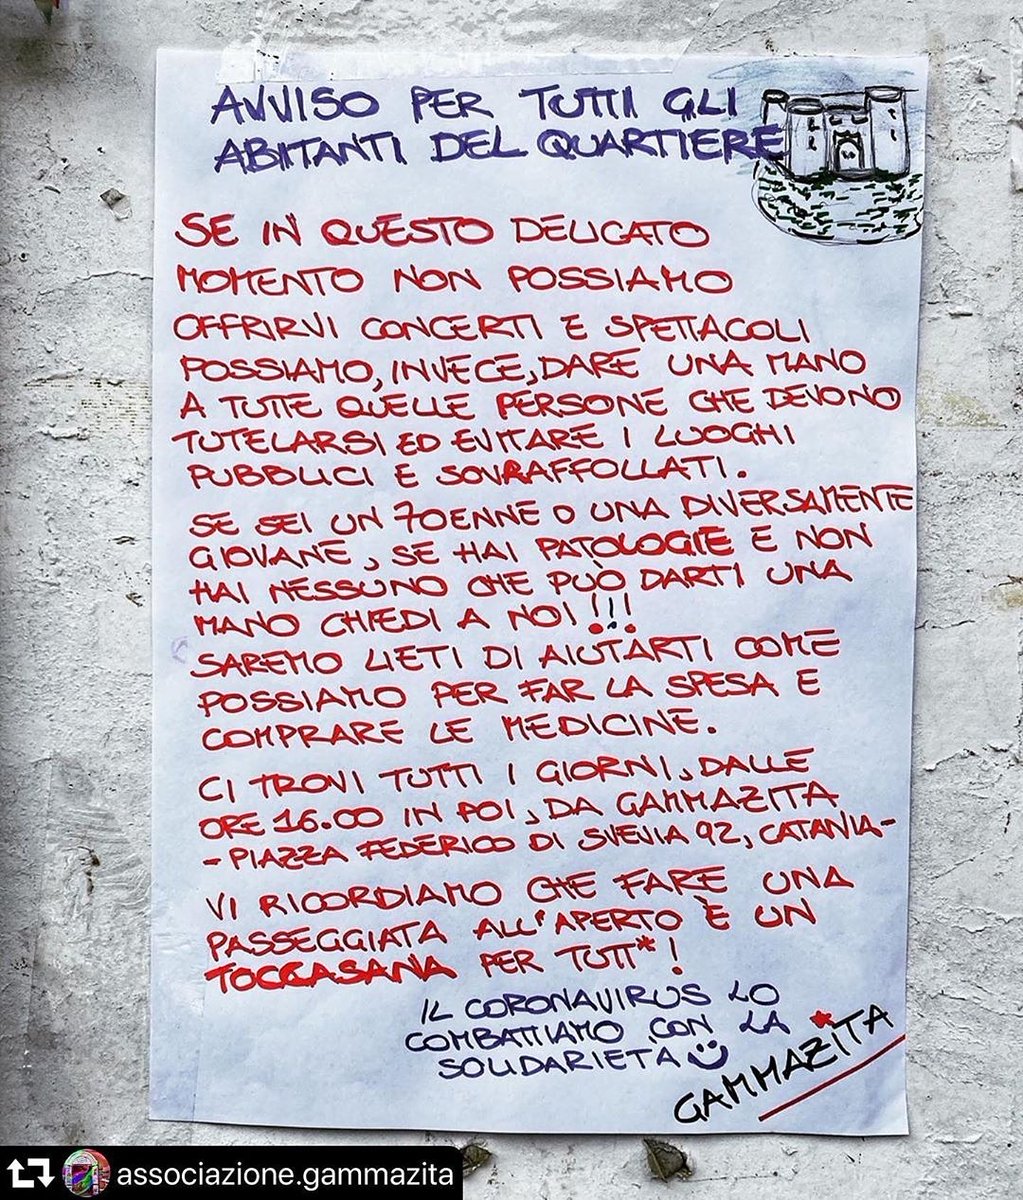 AVVISO PER TUTTI GLI
ABITANTI DEL QUARTIERE
SE IN QUESTO DELICATO
MOMENTO NON POSSIAMO
OFFRIRVI CONCERTI E SPETTACOLI
POSSIAMO, INVECE, DARE UNA MANO
A TUTTE QUELLE PERSONE CHE DEVONO
TUTELARSI ED EVITARE I LUOGHI
PUBBLICI E SOVRAFFOLLATI.
SE SEI UN 70ENNE O UNA DIVERSAMENTE
GIOVANE, SE HAI PATOLOGIE E NON
HAI NESSUNO CHE PUÒ DARTI UNA
MANO CHIEDI A NOI!!!
SAREMO LIETI DI AIUTARTI COME
POSSIAMO PER FAR LA SPESA E
COMPRARE LE MEDICINE.
CI TROVI TUTTI I GIORNI, DALLE
ORE 16.00 IN POI, DA GAMMAZITA
- PIAZZA FEDERICO DI SVEVIA 92, CATANIA -
VI RICORDIAMO CHE FARE UNA
PASSEGGIATA ALL'APERTO È UN
TOCCASANA PER TUTT*!
IL CORONAVIRUS LO
COMBATTIAMO CON LA
SOLIDARIETÀ
GAMMAZITA
associazione.gammazita